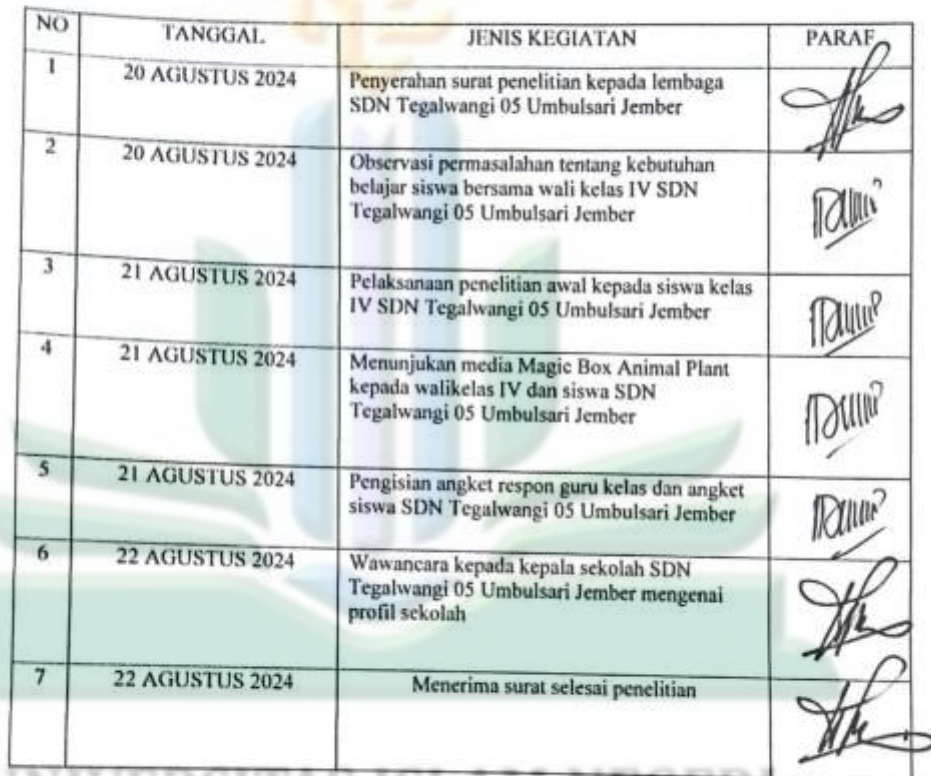 NO TANGGAL JENIS KEGIATAN PARAF
1 20 AGUSTUS 2024 Penyerahan surat penelitian kepada lembaga
SDN Tegalwangi 05 Umbulsari Jember
2 20 AGUSTUS 2024 Observasi permasalahan tentang kebutuhan
belajar siswa bersama wali kelas IV SDN
Tegalwangi 05 Umbulsari Jember
3 21 AGUSTUS 2024 Pelaksanaan penelitian awal kepada siswa kelas
IV SDN Tegalwangi 05 Umbulsari Jember
4 21 AGUSTUS 2024 Menunjukan media Magic Box Animal Plant
kepada walikelas IV dan siswa SDN
Tegalwangi 05 Umbulsari Jember
5 21 AGUSTUS 2024 Pengisian angket respon guru kelas dan angket
siswa SDN Tegalwangi 05 Umbulsari Jember
6 22 AGUSTUS 2024 Wawancara kepada kepala sekolah SDN
Tegalwangi 05 Umbulsari Jember mengenai
profil sekolah
7 22 AGUSTUS 2024 Menerima surat selesai penelitian